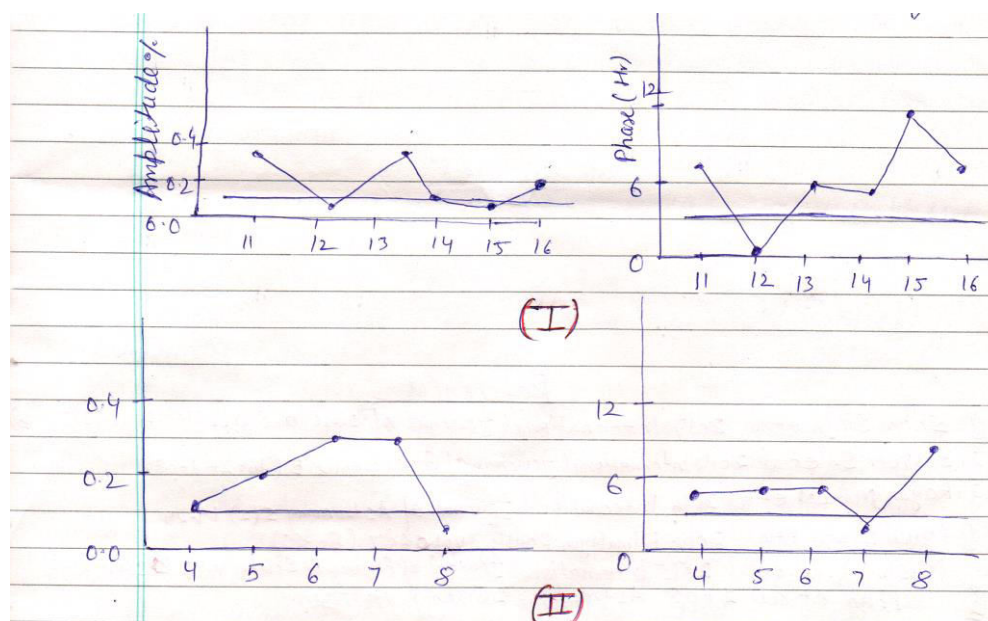 Amplitude%
0.4
0.2
0.0
11 12 13 14 15 16
Phase (Hr)
12
6
0
11 12 13 14 15 16
(I)
0.4
0.2
0.0
4 5 6 7 8
12
6
0
4 5 6 7 8
(II)